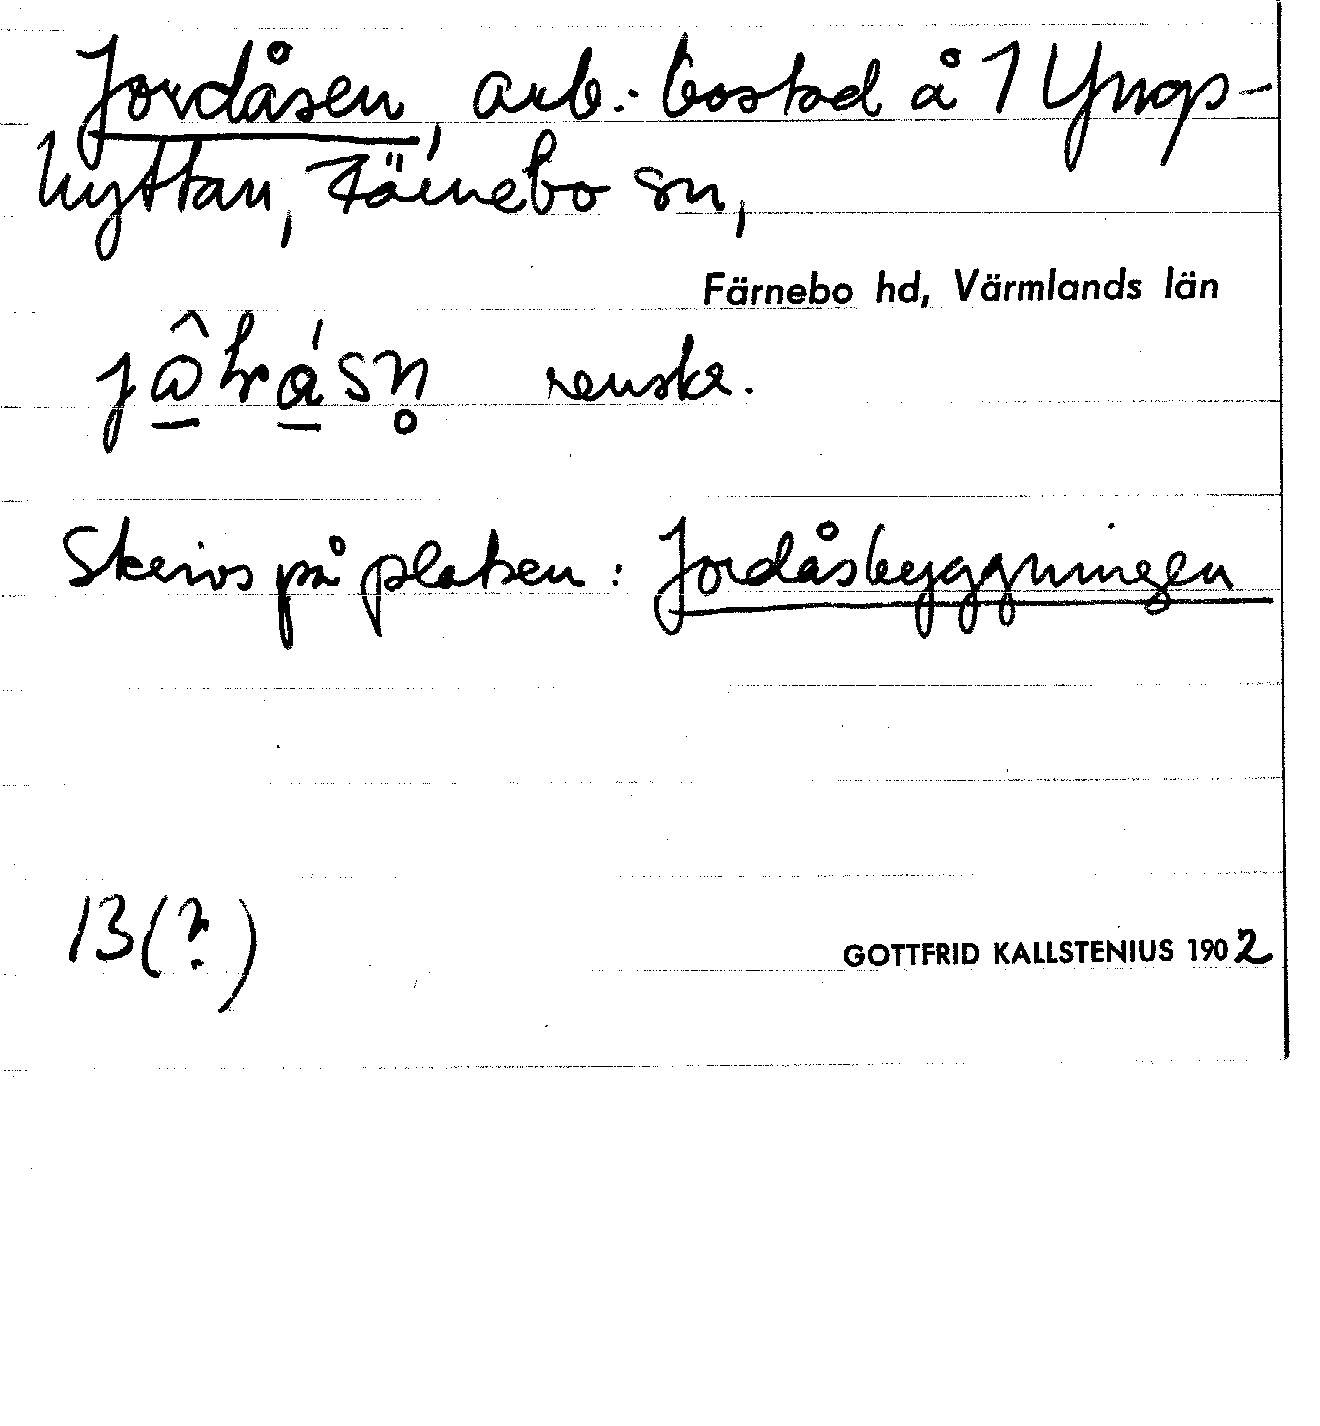 Jordåsen, arb.-bostad å 1 Yngs-
hyttan, Färnebo sn,
Färnebo hd, Värmlands län
renskr.
Skrivs på platsen: Jordåsbyggningen
13(?)
GOTTFRID KALLSTENIUS 1902